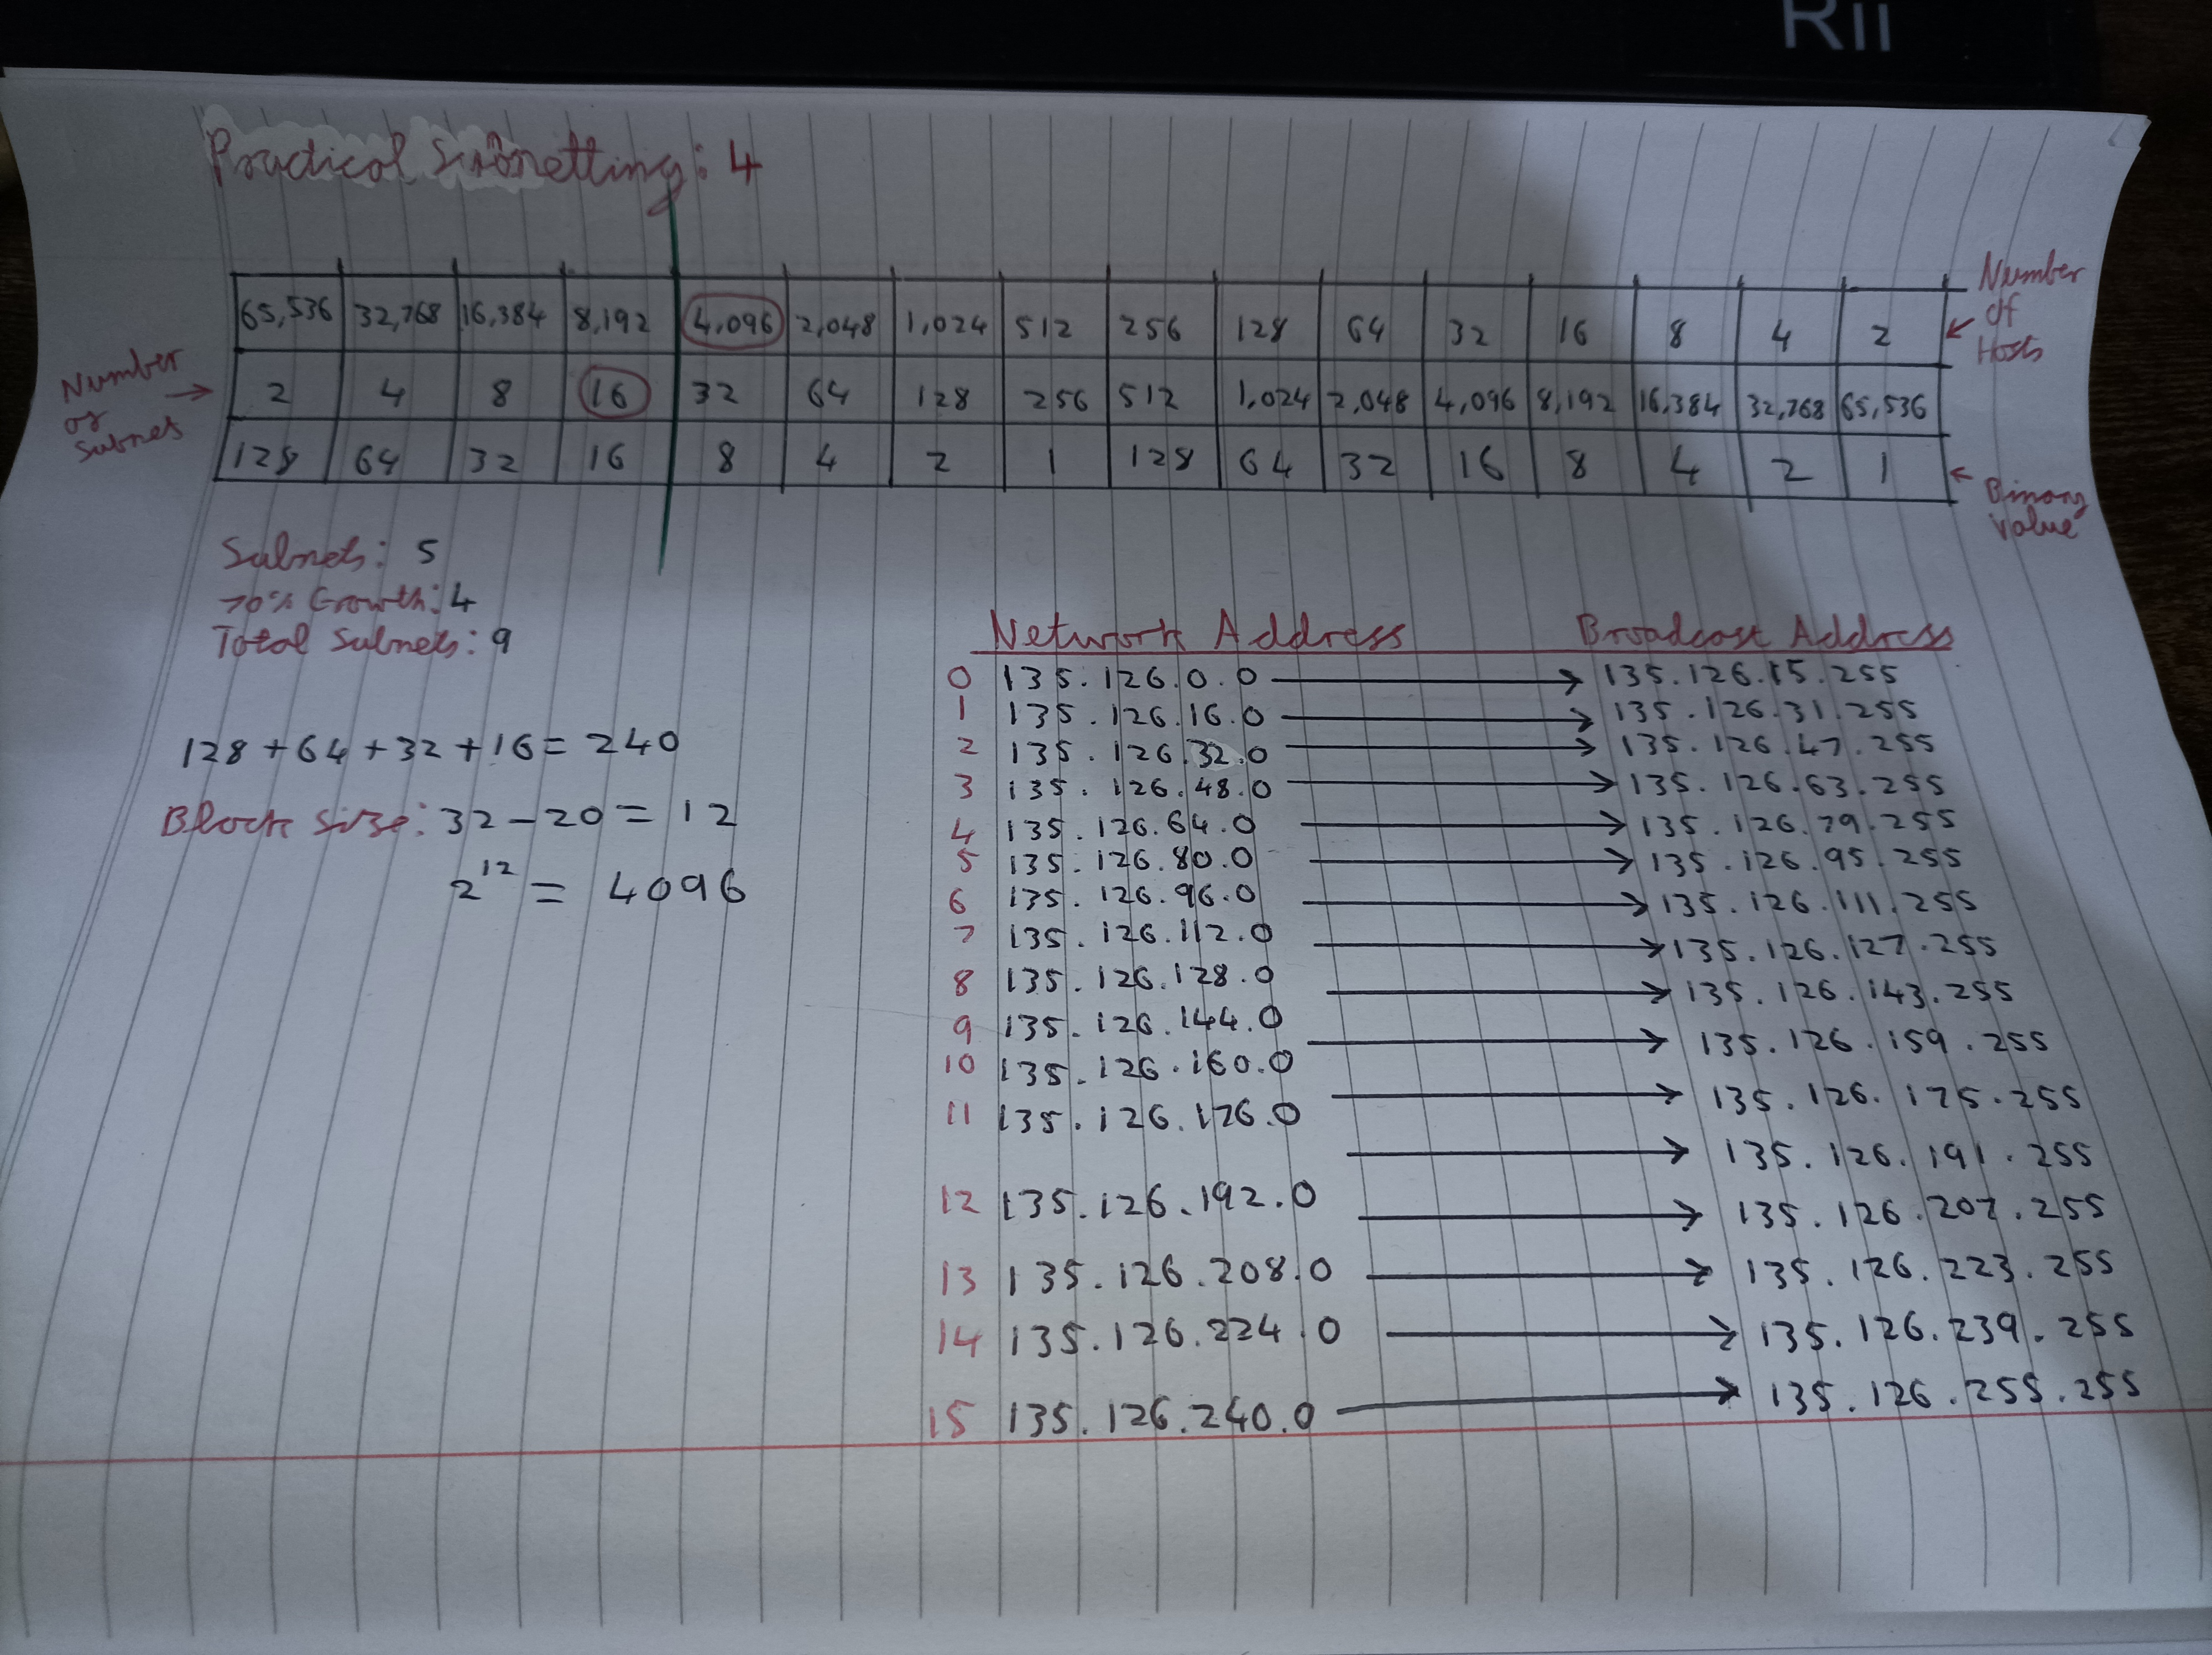 Rii
Practical Subnetting: 4
Number of Hosts
65,536 32,768 16,384 8,192 4,096 2,048 1,024 512 256 128 64 32 16 8 4 2
Number of Subnets
2 4 8 16 32 64 128 256 512 1,024 2,048 4,096 8,192 16,384 32,768 65,536
128 64 32 16 8 4 2 1 128 64 32 16 8 4 2 1
Binary value
Subnets: 5
70% Growth: 4
Total Subnets: 9
128+64+32+16=240
Block size: 32-20=12
2^12 = 4096
Network Address Broadcast Address
0 135.126.0.0 → 135.126.15.255
1 135.126.16.0 → 135.126.31.255
2 135.126.32.0 → 135.126.47.255
3 135.126.48.0 → 135.126.63.255
4 135.126.64.0 → 135.126.79.255
5 135.126.80.0 → 135.126.95.255
6 135.126.96.0 → 135.126.111.255
7 135.126.112.0 → 135.126.127.255
8 135.126.128.0 → 135.126.143.255
9 135.126.144.0 → 135.126.159.255
10 135.126.160.0 → 135.126.175.255
11 135.126.176.0 → 135.126.191.255
12 135.126.192.0 → 135.126.207.255
13 135.126.208.0 → 135.126.223.255
14 135.126.224.0 → 135.126.239.255
15 135.126.240.0 → 135.126.255.255